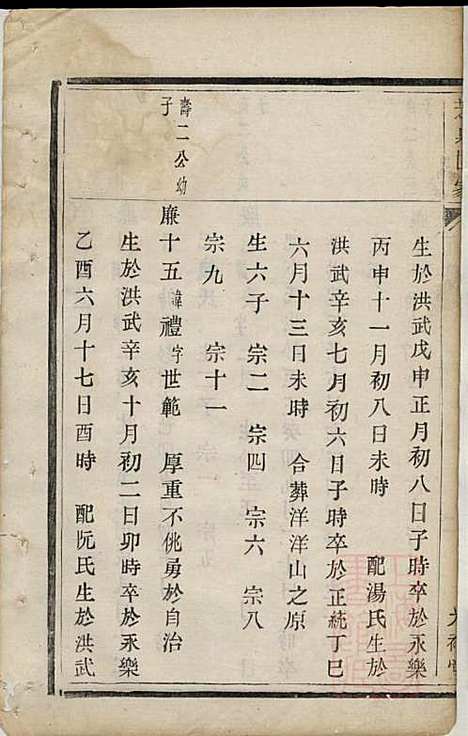 生於洪武戊申正月初八日子時卒於永樂
丙申十一月初八日未時　配湯氏生於
洪武辛亥七月初六日子時卒於正統丁巳
六月十三日未時　合葬洋洋山之原
生六子　宗二　宗四　宗六　宗八
宗九　宗十一
壽二公幼
子
廉十五諱禮字世範　厚重不佻勇於自治
生於洪武辛亥十月初二日卯時卒於永樂
乙酉六月十七日酉時　配阮氏生於洪武